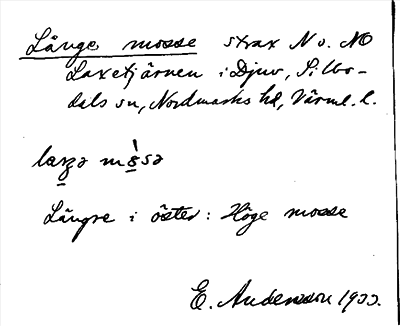 Långe mosse strax N o. NO
Laxetjärnen i Djuv, Silbo-
dals sn, Nordmarks hd, Värml. l.
Längre i öster: Höge mosse
E. Andersson 1933.